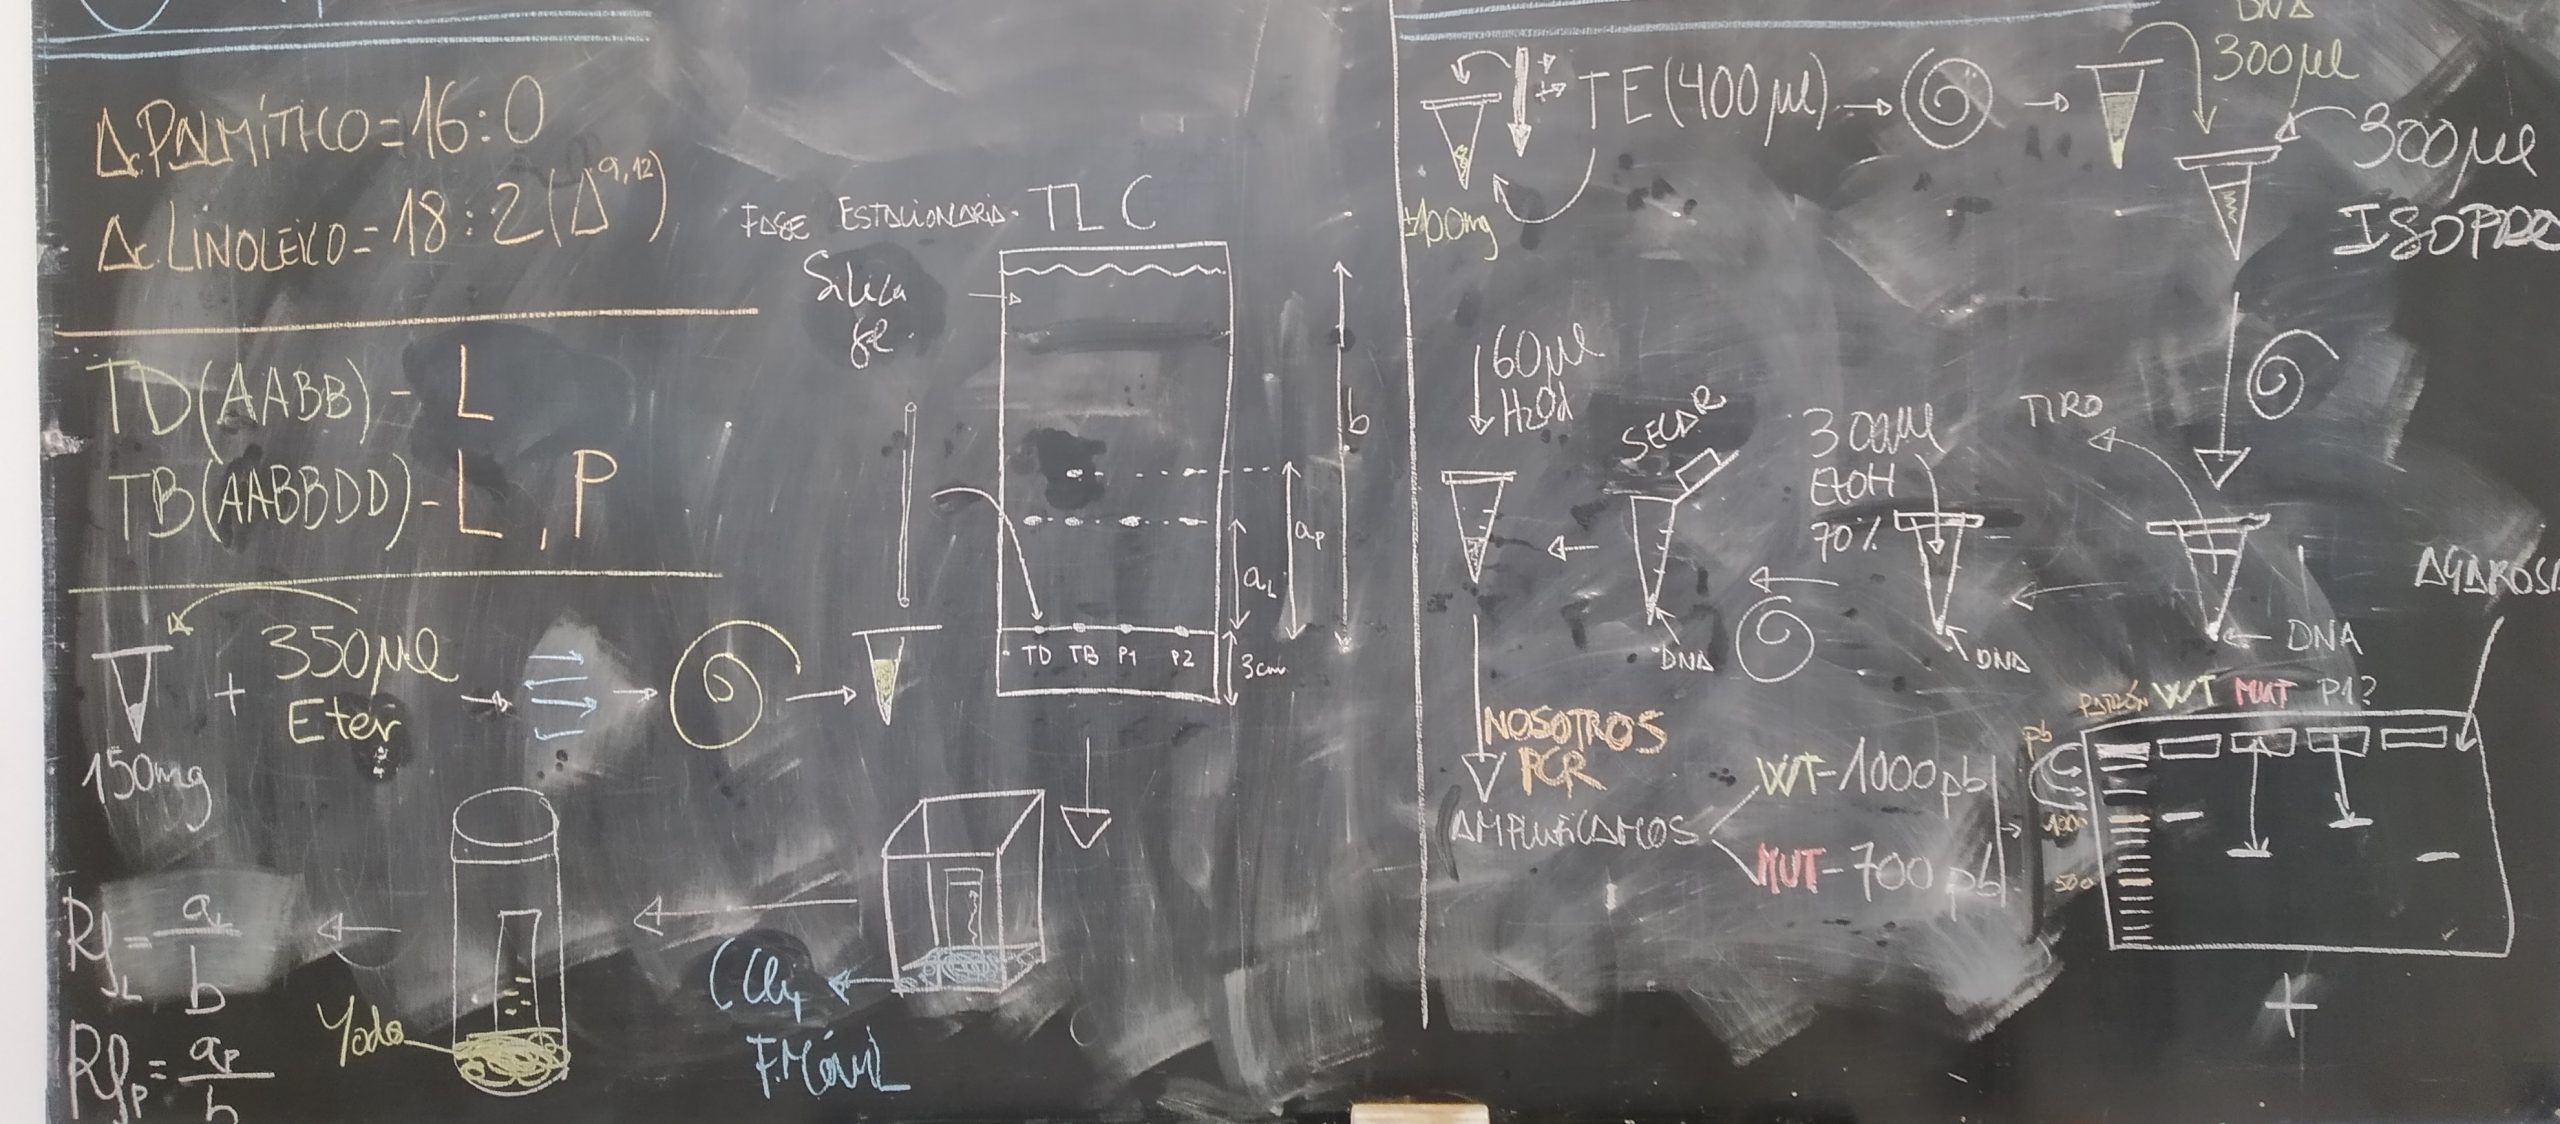 Ac. PALMÍTICO = 16:0
Ac. LINOLEICO = 18:2 (Δ9,12)
TD (AABB) - L
TB (AABBDD) - L, P
350 µl
Eter
+
150mg
RfL = aL / b
RfP = aP / b
Yodo
CCl4
F. MÓVIL
FASE ESTACIONARIA.
Silica
gel
TLC
b
aP
aL
3cm
TD TB P1 P2
TE (400 µl)
±100mg
DNA
300 µl
300 µl
ISOPRO
TIRO
DNA
300 µl
EtOH
70%
DNA
SECAR
DNA
60 µl
H2Od
NOSOTROS
PCR
AMPLIFICAMOS
WT - 1000 pb
MUT - 700 pb
AGAROSA
PATRÓN WT MUT P1?
pb
1000
500
+